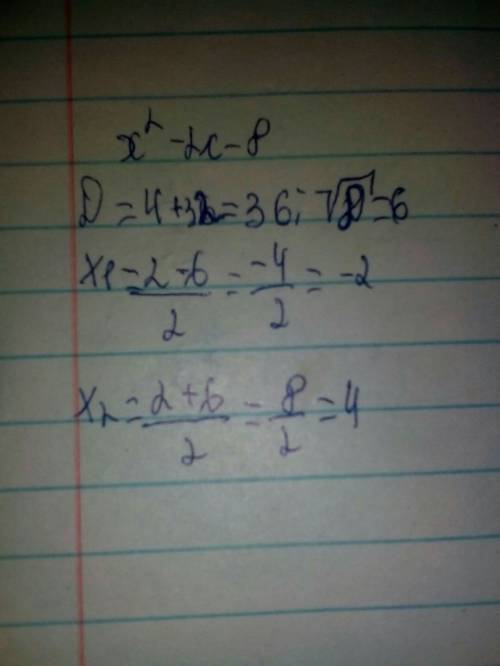 x² - 2x - 8
D = 4 + 32 = 36; √D = 6
x₁ = 2 - 6 / 2 = -4 / 2 = -2
x₂ = 2 + 6 / 2 = 8 / 2 = 4